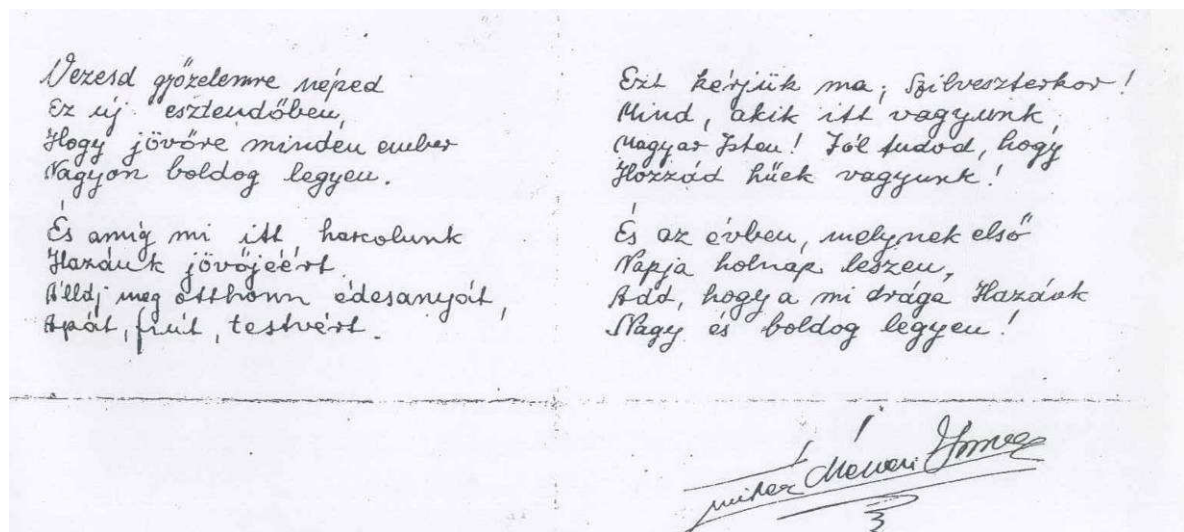 Vezesd győzelemre néped
Ez új esztendőben,
Hogy jövőre minden ember
Nagyon boldog legyen.
És amíg mi itt harcolunk
Hazánk jövőjéért
Álldj meg otthonn édesanyát,
Apát, fiút, testvért.
Ezt kérjük ma, Szilveszterkor!
Mind, akik itt vagyunk,
Magyar Isten! Jól tudod, hogy
Hozzád hűek vagyunk!
És az évben, melynek első
Napja holnap leszen,
Add, hogy a mi drága Hazánk
Nagy és boldog legyen!